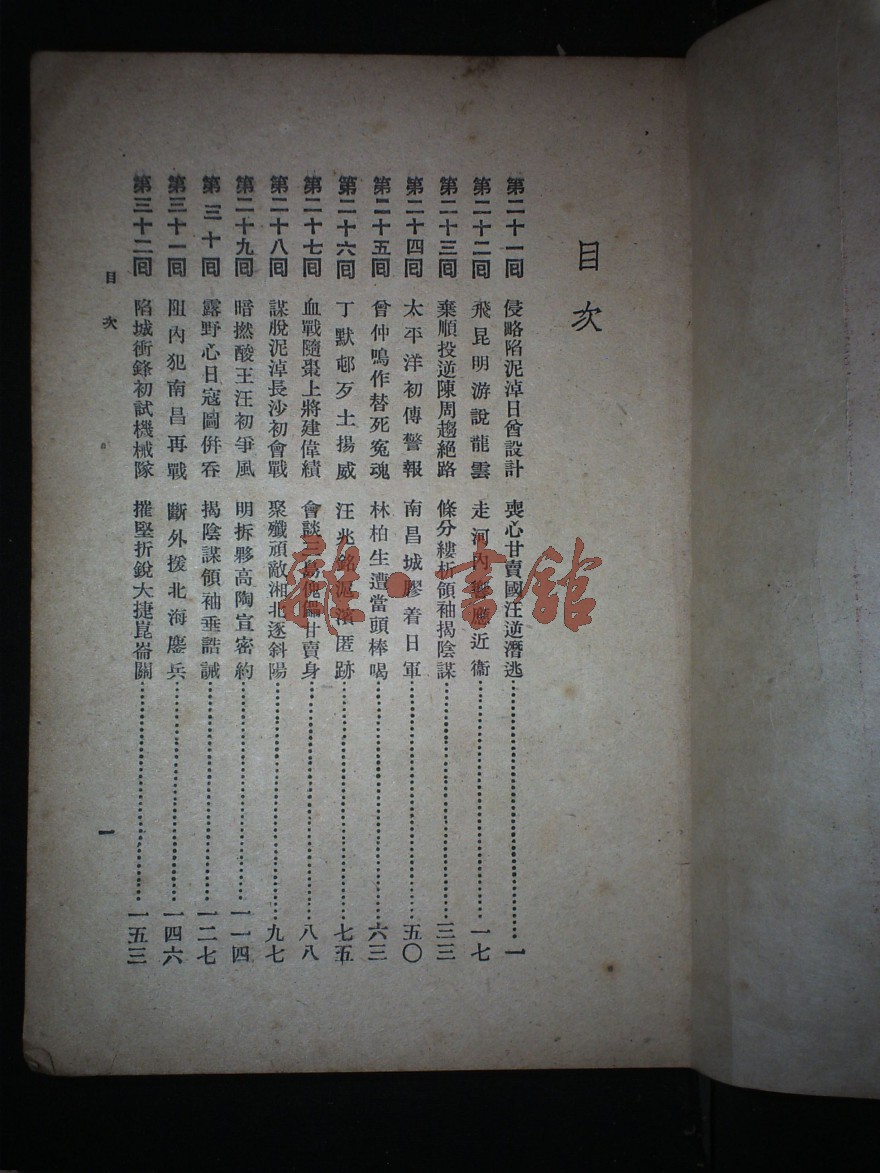 目次
第二十一囘 侵略陷泥淖日酋設計 喪心甘賣國汪逆潛逃 一
第二十二囘 飛昆明游說龍雲 走河內響應近衞 一七
第二十三囘 棄順投逆陳周趨絕路 條分縷析領袖揭陰謀 三三
第二十四囘 太平洋初傳警報 南昌城膠着日軍 五〇
第二十五囘 曾仲鳴作替死冤魂 林柏生遭當頭棒喝 六三
第二十六囘 丁默邨歹土揚威 汪兆銘滬濱匿跡 七五
第二十七囘 血戰隨棗上將建偉績 會談三島傀儡甘賣身 八八
第二十八囘 謀脫泥淖長沙初會戰 聚殲頑敵湘北逐斜陽 九七
第二十九囘 暗撚酸王汪初爭風 明拆夥高陶宣密約 一一四
第三十囘 露野心日寇圖併吞 揭陰謀領袖垂誥誡 一二七
第三十一囘 阻內犯南昌再戰 斷外援北海鏖兵 一四六
第三十二囘 陷城衝鋒初試機械隊 摧堅折銳大捷崑崙關 一五三
目次
一
雜·書館